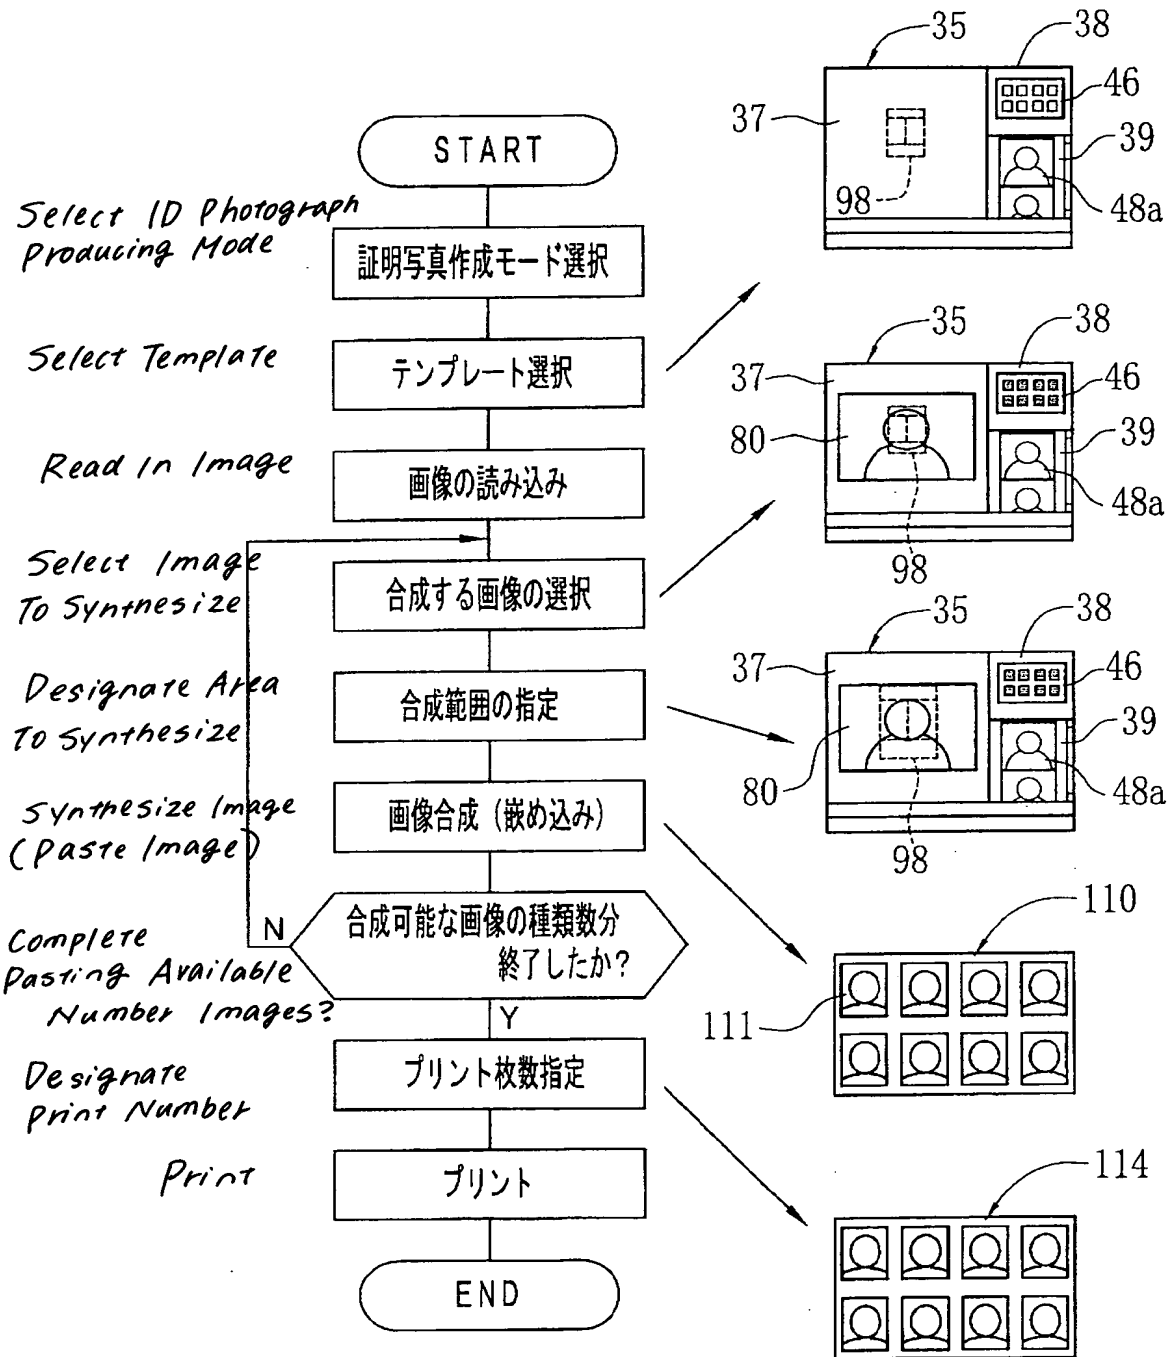 START
Select ID Photograph
Producing Mode
証明写真作成モード選択
Select Template
テンプレート選択
Read in Image
画像の読み込み
Select Image
To Synthesize
合成する画像の選択
Designate Area
To Synthesize
合成範囲の指定
Synthesize Image
(Paste Image)
画像合成(嵌め込み)
Complete
Pasting Available
Number Images?
合成可能な画像の種類数分
終了したか?
N
Y
Designate
Print Number
プリント枚数指定
Print
プリント
END
35
38
37
46
39
98
48a
35
38
37
46
80
39
48a
98
35
38
37
46
39
80
48a
98
110
111
114